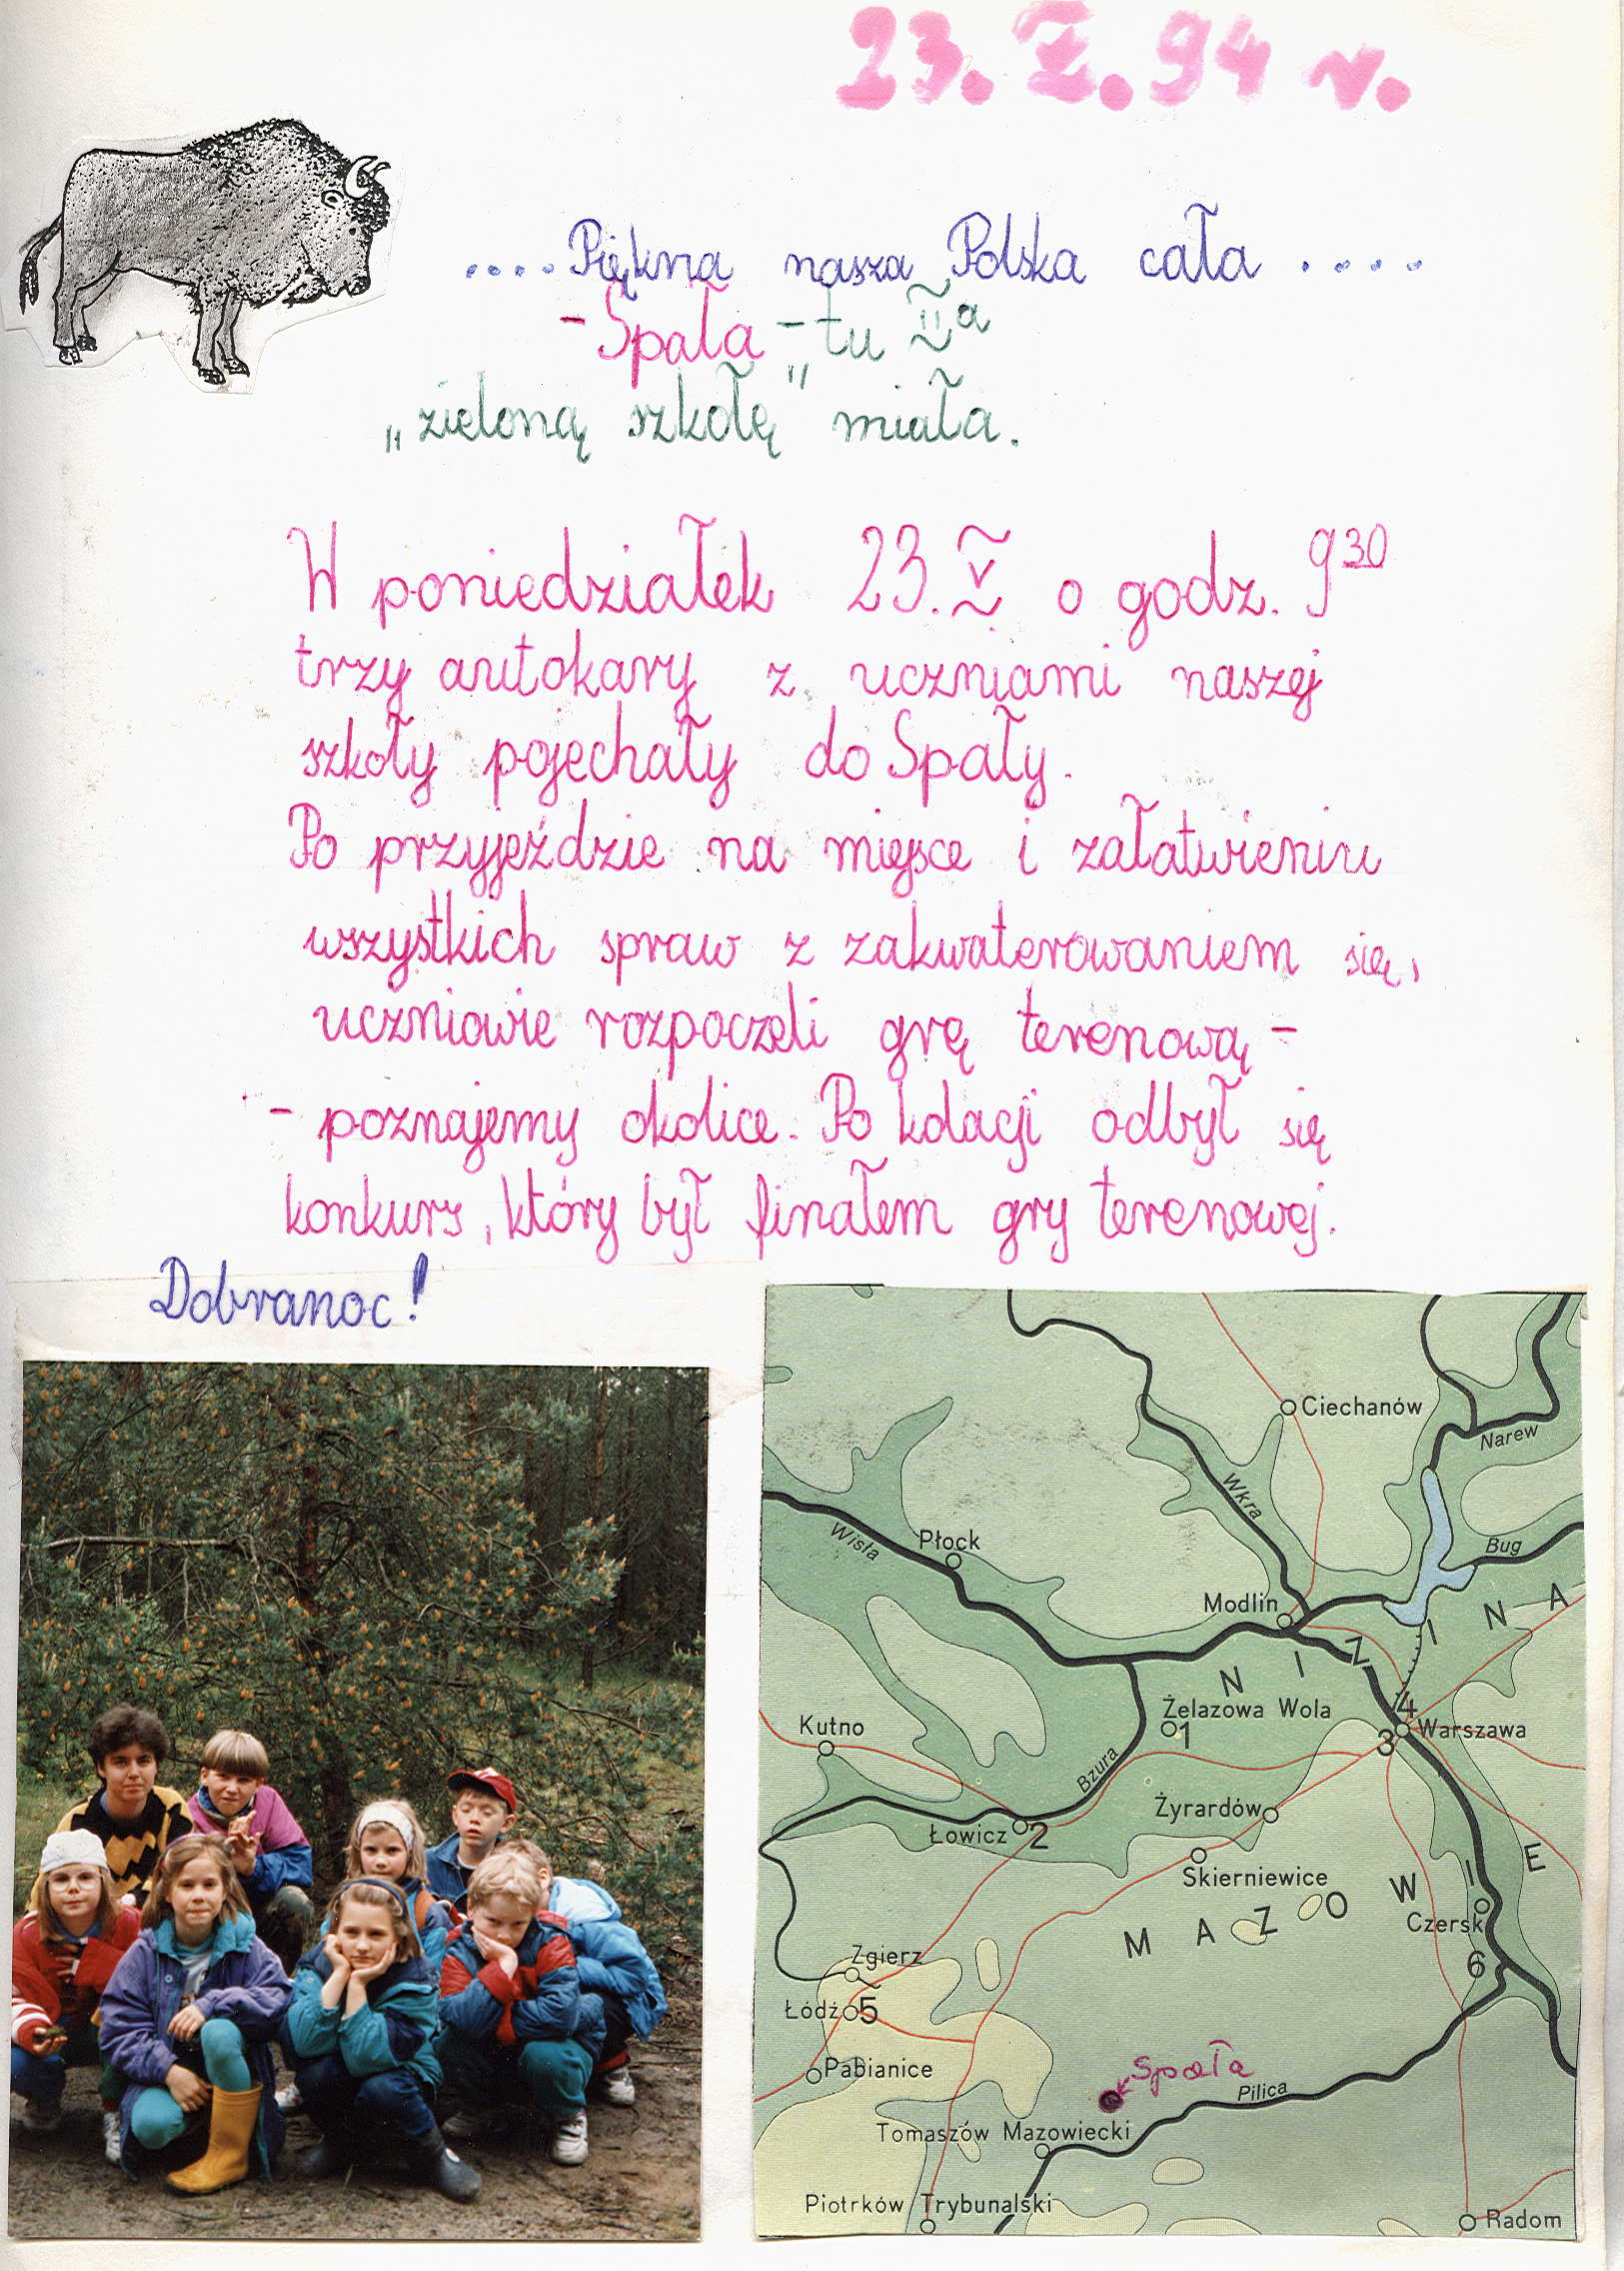 23. V. 94 r.
....Piękna nasza Polska cała ....
- Spała - tu IIa
„zieloną szkołę" miała.
W poniedziałek 23. V o godz. 9 30
trzy autokary z uczniami naszej
szkoły pojechały do Spały.
Po przyjeździe na miejsce i załatwieniu
wszystkich spraw z zakwaterowaniem się,
uczniowie rozpoczeli grę terenową -
- poznajemy okolice. Po kolacji odbył się
konkurs, który był finałem gry terenowej.
Dobranoc!
Ciechanów
Narew
Wkra
Wisła
Płock
Bug
Modlin
NIZINA
Żelazowa Wola
1
4
Warszawa
3
Kutno
Bzura
Żyrardów
Łowicz 2
Skierniewice
MAZOWIE
Czersk
6
Zgierz
Łódź 5
Pabianice
Spała
Pilica
Tomaszów Mazowiecki
Piotrków Trybunalski
Radom